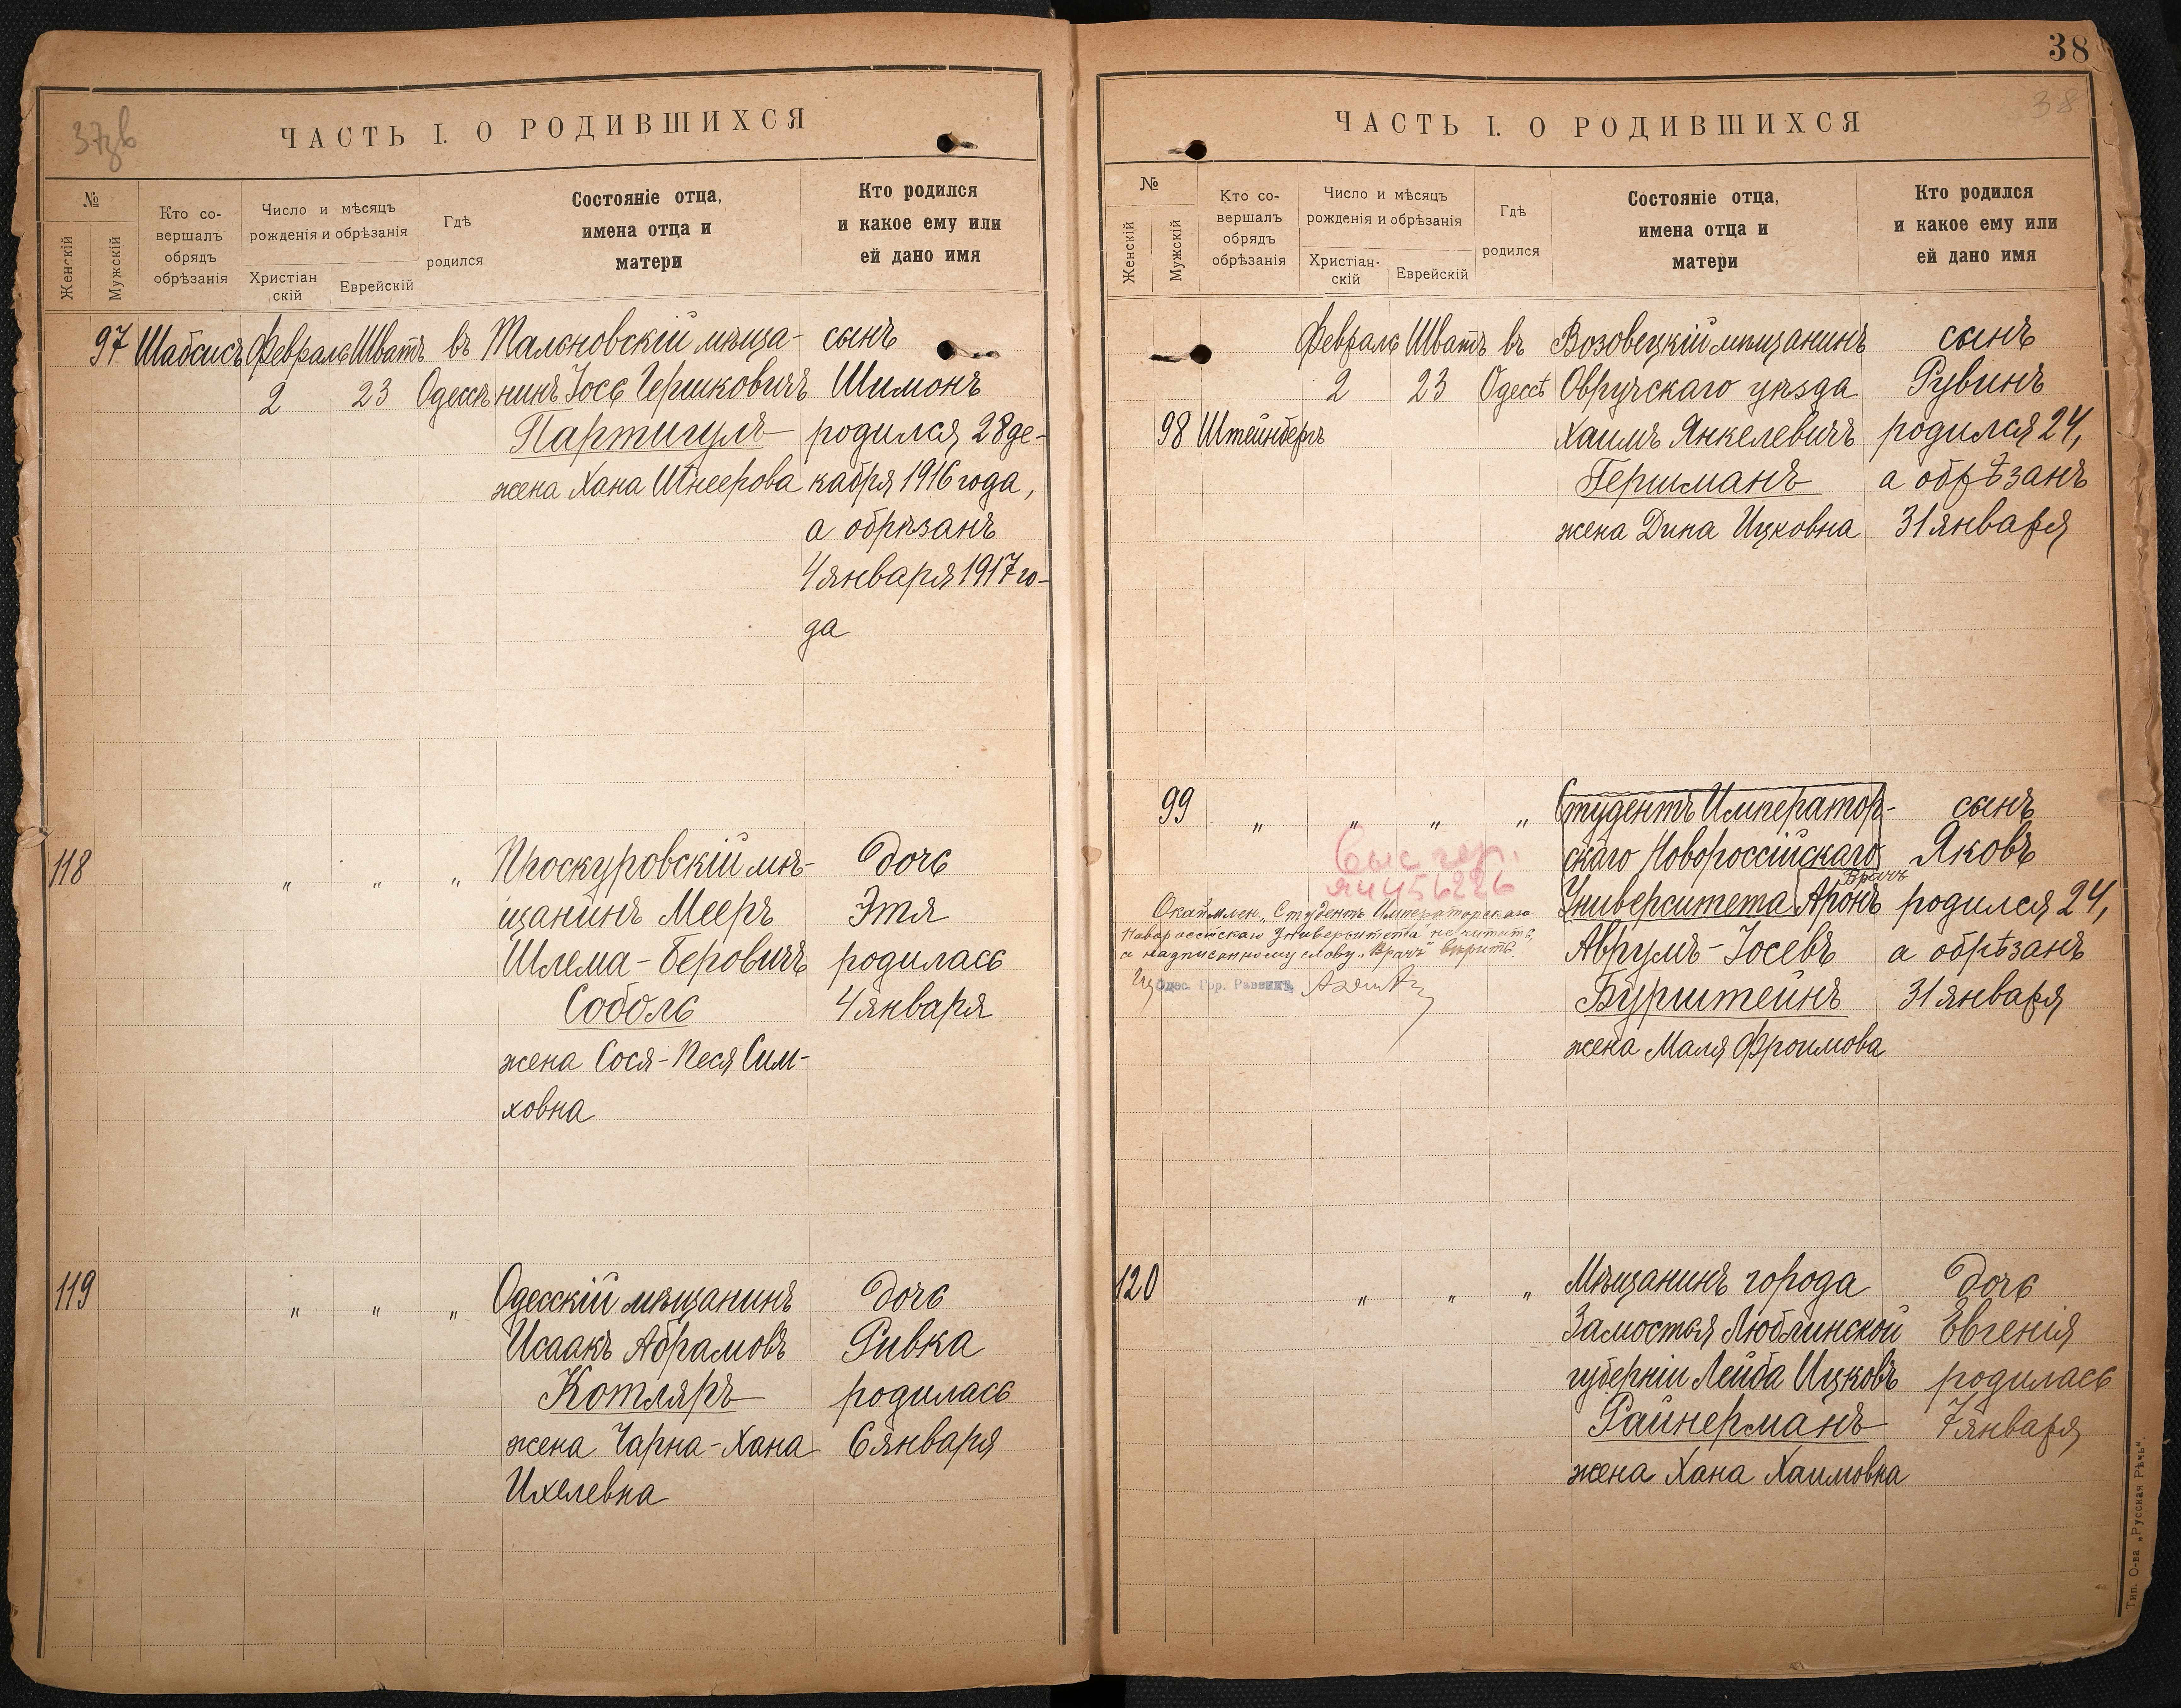 37зв
ЧАСТЬ I. О РОДИВШИХСЯ
№
Женскій
Мужскій
Кто со-
вершалъ
обрядъ
обрѣзанія
Число и мѣсяцъ
рожденія и обрѣзанія
Христіан
скій
Еврейскій
Гдѣ
родился
Состояніе отца,
имена отца и
матери
Кто родился
и какое ему или
ей дано имя
97 Шабсисъ Февраль Шватъ въ Тальновскій мѣща- сынъ
2 23 Одессѣ нинъ Іось Гершковичъ Шимонъ
Партигулъ родился 28 де-
жена Хана Шнеерова кабря 1916 года,
а обрѣзанъ
4 января 1917 го-
да
118 " " " Проскуровскій мѣ- дочь
щанинъ Мееръ Этя
Шлема-Беровичъ родилась
Соболь 4 января
жена Сося-Песя Сим-
ховна
119 " " " Одесскій мѣщанинъ дочь
Исаакъ Абрамовъ Ривка
Котляръ родилась
жена Чарна-Хана 6 января
Ихелевна
38
38
ЧАСТЬ I. О РОДИВШИХСЯ
№
Женскій
Мужскій
Кто со-
вершалъ
обрядъ
обрѣзанія
Число и мѣсяцъ
рожденія и обрѣзанія
Христіан-
скій
Еврейскій
Гдѣ
родился
Состояніе отца,
имена отца и
матери
Кто родился
и какое ему или
ей дано имя
Февраль Шватъ въ Возовецкій мѣщанинъ сынъ
2 23 Одессѣ Овручскаго уѣзда Рувинъ
98 Штейнбергъ Хаимъ Янкелевичъ родился 24,
Гершманъ а обрѣзанъ
жена Дина Ицковна 31 января
99 " " " " Студентъ Император- сынъ
скаго Новороссійскаго Яковъ
Врачъ
Университета Аронъ родился 24,
Аврумъ-Іосевъ а обрѣзанъ
Бурштейнъ 31 января
жена Маля Фроимова
Окаймлен. „Студентъ Императорскаго
Новороссійскаго Университета" не читать,
а надписанному слову „Врачъ" вѣрить.
Одес. Гор. Раввинъ
120 " " " Мѣщанинъ города дочь
Замостья Люблинской Евгенія
губерніи Лейба Ицковъ родилась
Райнерманъ 7 января
жена Хана Хаимовна
Тип. О-ва „Русская Рѣчь".